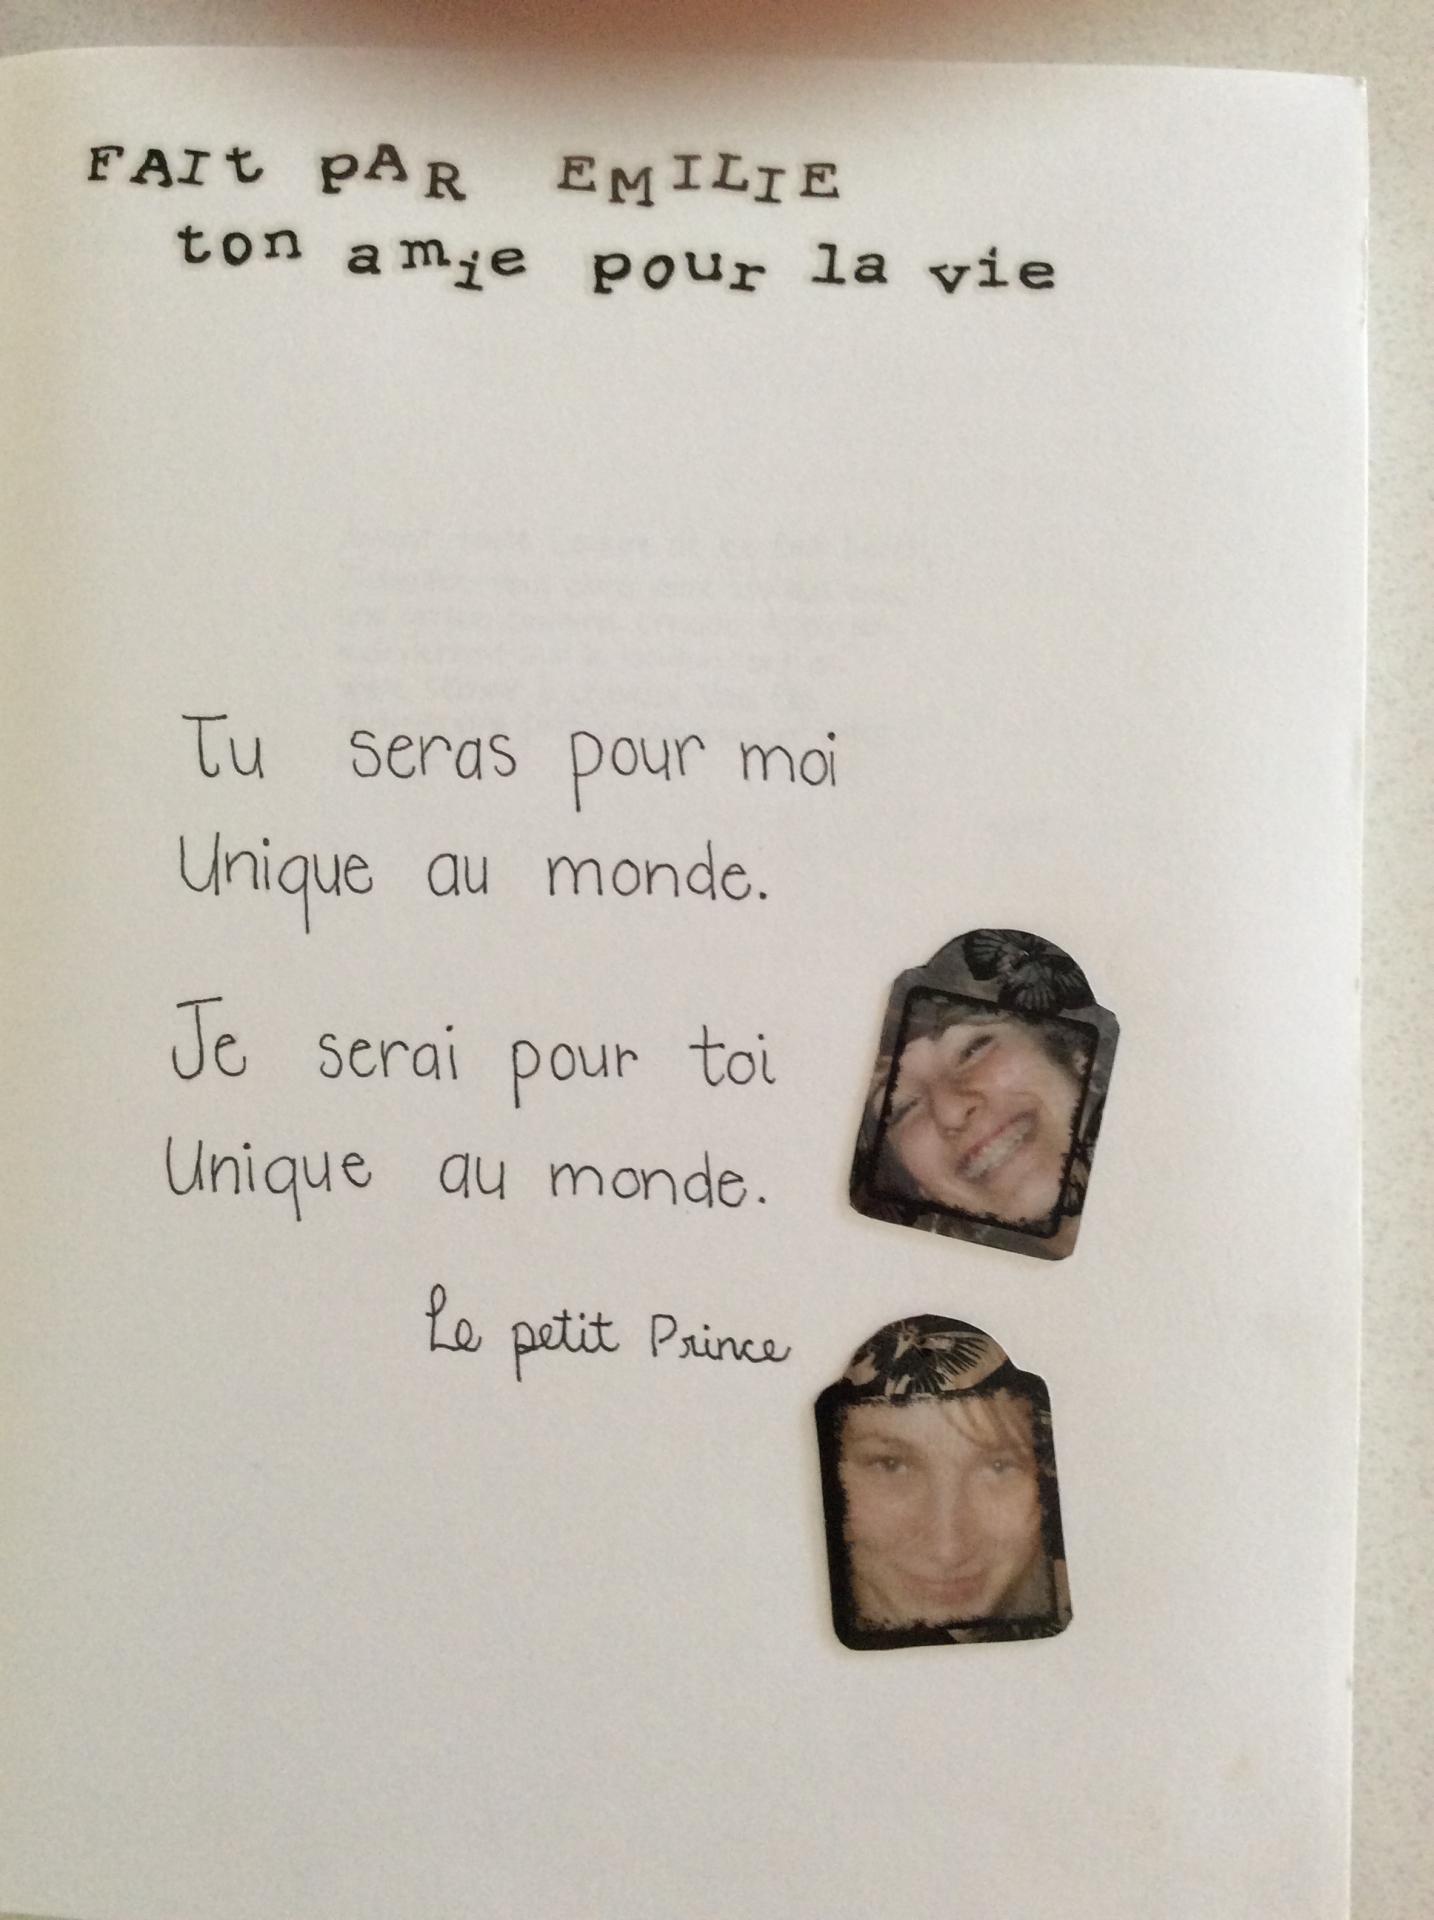 FAIt pAR EMILIE
ton amie pour la vie
Tu seras pour moi
Unique au monde.
Je serai pour toi
Unique au monde.
Le petit Prince